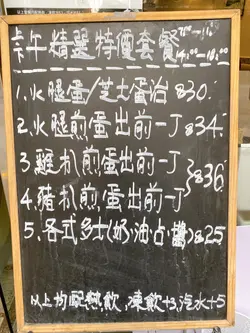 午精選特價套餐
1. 火腿蛋/芝士蛋治 $30.
2. 火腿煎蛋出前一丁 $34.
3. 雞扒煎蛋出前一丁
4. 豬扒煎蛋出前一丁 } $36
5. 各式多士(奶·油·占·醬) $25
以上均配熱飲, 凍飲+3, 汽水+5